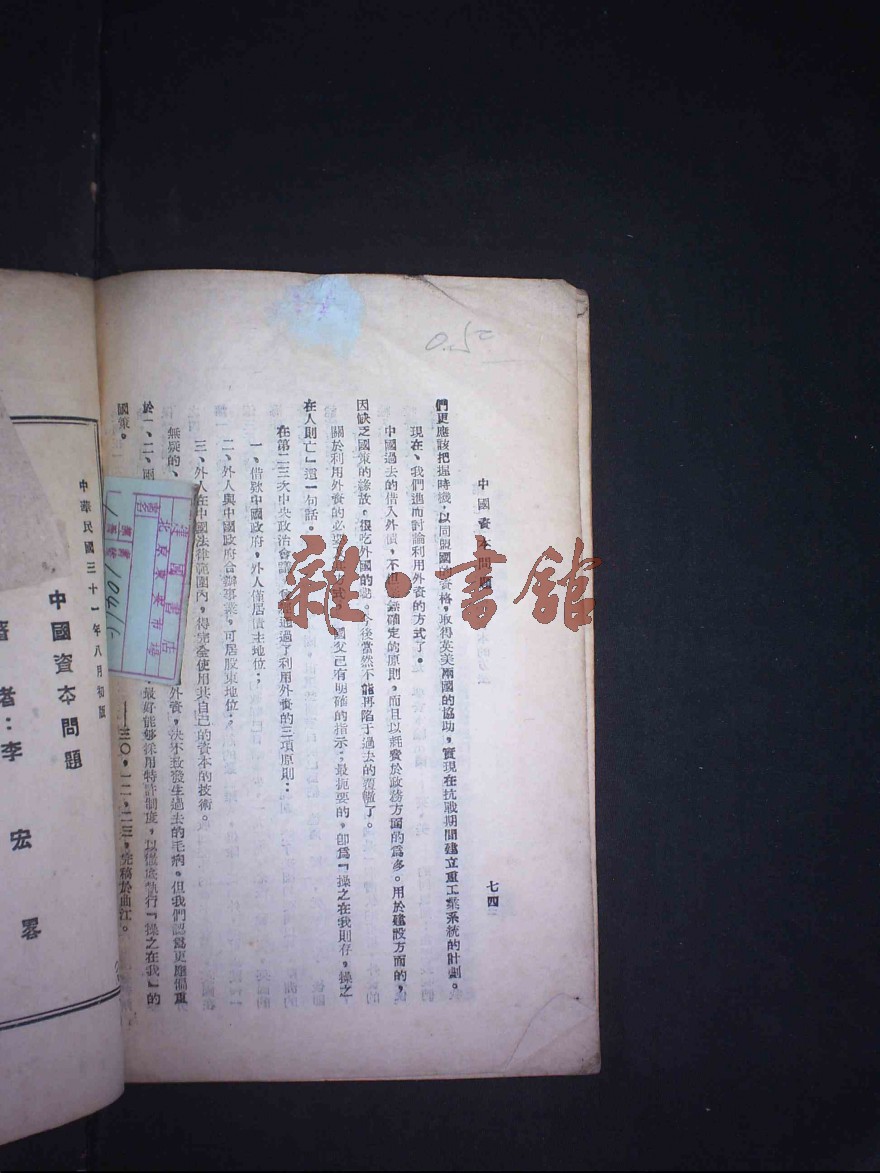 0.50
中國資本問題
七四
們更應該把握時機,以同盟國的資格,取得英美兩國的協助,實現在抗戰期間建立重工業系統的計劃。
現在、我們進而討論利用外資的方式了。
中國過去的借入外債,不但 確定的原則,而且以耗費於政務方面的爲多。用於建設方面的,
因缺乏國策的緣故,很吃外國的 。今後當然不能再陷于過去的覆轍了。
關於利用外資的必要 方式, 國父已有明確的指示;最扼要的,卽爲「操之在我則存,操之
在人則亡」這一句話。
在第二三次中央政治會議, 通過了利用外資的三項原則:
一、借欵中國政府,外人僅居債主地位;
二、外人與中國政府合辦事業,可居股東地位;
三、外人在中國法律範圍內,得完全使用其自己的資本的技術。
無疑的、 外資,決不致發生過去的毛病。但我們認爲更應偏重
於一、二、兩 最好能够採用特許制度,以徹底執行「操之在我」的
國策。
——三〇,一二,二三,完稿於曲江。
中華民國三十一年八月初版
中國資本問題
著者:李宏畧
雜·書館
書店